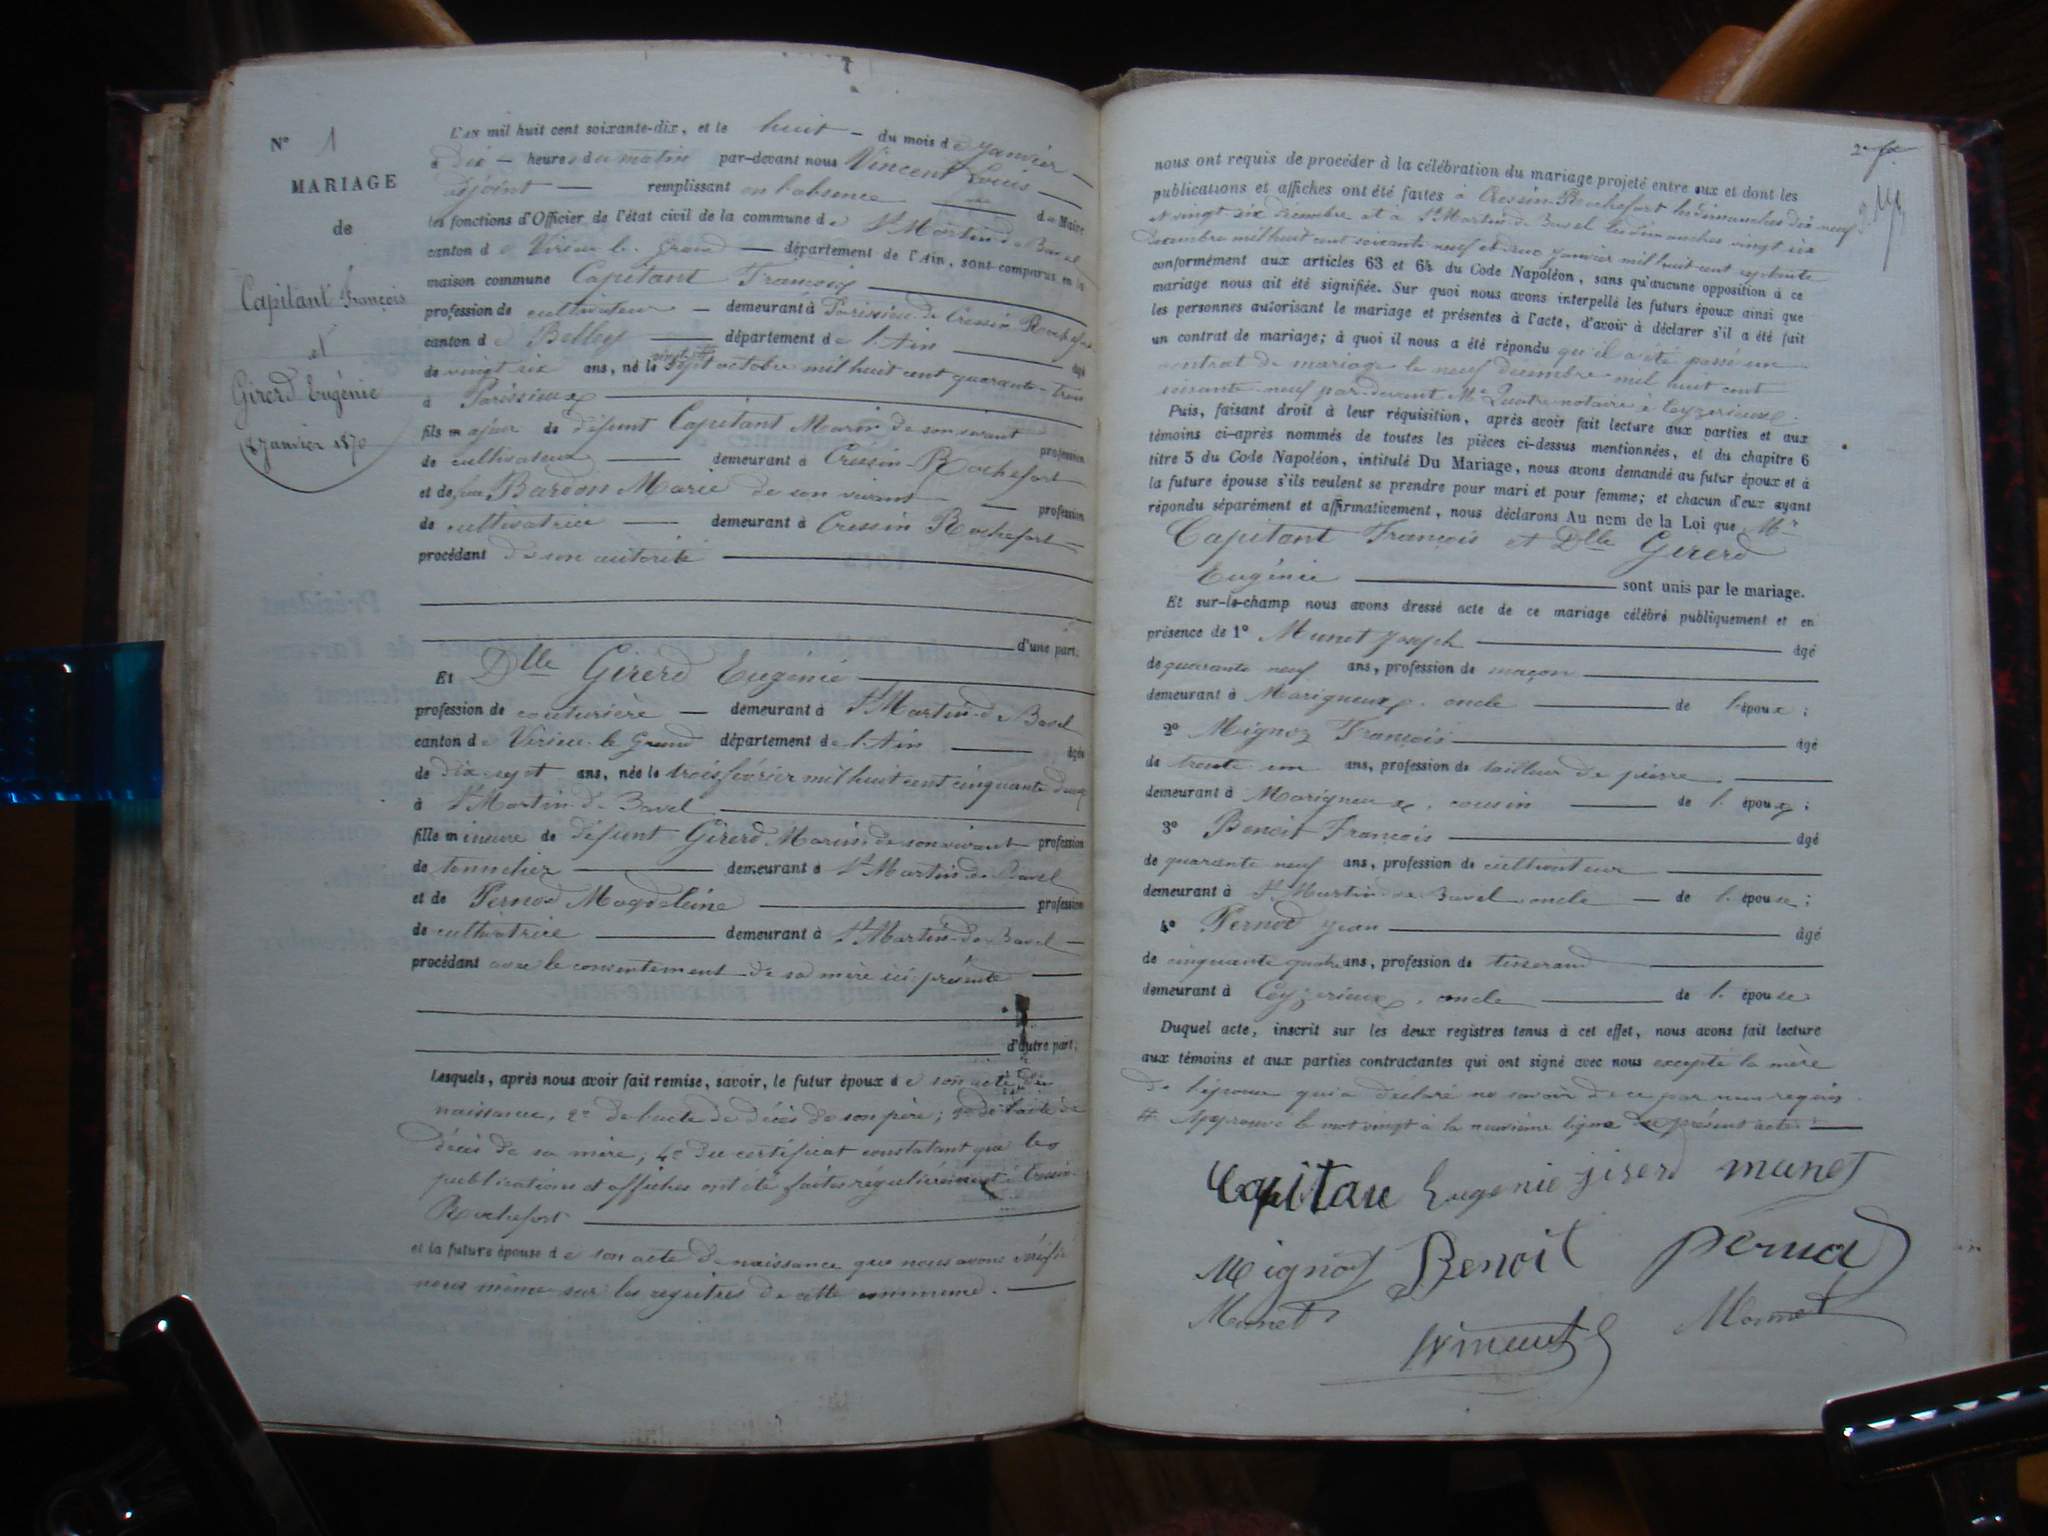 N° 1
MARIAGE
de
Capitant François
et
Girerd Eugénie
8 Janvier 1870
L'an mil huit cent soixante-dix, et le huit — du mois de janvier —
à dix — heures du matin par-devant nous Vincent Louis —
adjoint — remplissant en l'absence — du Maire
les fonctions d'Officier de l'état civil de la commune de St Martin de Bavel
canton de Virieu le Grand — département de l'Ain, sont comparus en la
maison commune Capitant François
profession de cultivateur — demeurant à Parissieu de Cressin Rochefort
canton de Belley — département de l'Ain — âgé
de vingt six ans, né le vingt # sept octobre mil huit cent quarante-trois
à Parissieux
fils majeur de défunt Capitant Marin de son vivant profession
de cultivateur — demeurant à Cressin-Rochefort
et de feue Bardon Marie de son vivant — profession
de cultivatrice — demeurant à Cressin Rochefort —
procédant de son autorité
d'une part;
Et Dlle Girerd Eugénie
profession de couturière — demeurant à St Martin de Bavel
canton de Virieu-le-Grand département de l'Ain — âgée
de dix-sept ans, née le trois février mil huit cent cinquante deux
à St Martin de Bavel
fille mineure de défunt Girerd Marin de son vivant profession
de tonnelier — demeurant à St Martin de Bavel
et de Pernod Magdeleine — profession
de cultivatrice — demeurant à St Martin-de-Bavel —
procédant avec le consentement de sa mère ici présente
d'autre part;
Lesquels, après nous avoir fait remise, savoir, le futur époux de son acte de
naissance, 2° de l'acte de décès de son père; 3° de l'acte de
décès de sa mère; 4° du certificat constatant que les
publications et affiches ont été faites régulièrement à Cressin-
Rochefort
et la future épouse de son acte de naissance que nous avons vérifié
nous même sur les registres de cette commune. —
2e
nous ont requis de procéder à la célébration du mariage projeté entre eux et dont les
publications et affiches ont été faites à Cressin-Rochefort les dimanches dix-neuf
et vingt six décembre et à St Martin-de Bavel les dimanches vingt six
décembre mil huit cent soixante neuf et deux janvier mil huit cent septante
conformément aux articles 63 et 64 du Code Napoléon, sans qu'aucune opposition à ce
mariage nous ait été signifiée. Sur quoi nous avons interpellé les futurs époux ainsi que
les personnes autorisant le mariage et présentes à l'acte, d'avoir à déclarer s'il a été fait
un contrat de mariage; à quoi il nous a été répondu qu'il a été passé un
contrat de mariage le neuf décembre mil huit cent
soixante-neuf par-devant Me notaire à Ceyzerieux.
Puis, faisant droit à leur réquisition, après avoir fait lecture aux parties et aux
témoins ci-après nommés de toutes les pièces ci-dessus mentionnées, et du chapitre 6
titre 5 du Code Napoléon, intitulé Du Mariage, nous avons demandé au futur époux et à
la future épouse s'ils veulent se prendre pour mari et pour femme; et chacun d'eux ayant
répondu séparément et affirmativement, nous déclarons Au nom de la Loi que Mr
Capitant François et Dlle Girerd
Eugénie — sont unis par le mariage.
Et sur-le-champ nous avons dressé acte de ce mariage célébré publiquement et en
présence de 1° Munet Joseph — âgé
de quarante neuf ans, profession de maçon
demeurant à Marigneux, oncle — de l'époux;
2° Mignoz François — âgé
de trente-un ans, profession de tailleur de pierre
demeurant à Marigneux, cousin — de l'époux;
3° Benoit François — âgé
de quarante neuf ans, profession de cultivateur
demeurant à St Martin-de-Bavel oncle — de l'épouse;
4° Pernod Jean — âgé
de cinquante quatre ans, profession de tisserand
demeurant à Ceyzerieux, oncle — de l'épouse
Duquel acte, inscrit sur les deux registres tenus à cet effet, nous avons fait lecture
aux témoins et aux parties contractantes qui ont signé avec nous excepté la mère
de l'épouse qui a déclaré ne savoir de ce par nous requis.
# Approuvé le mot vingt à la neuvième ligne du présent acte. —
Capitan Eugenie jirerd munet
Mignoz Benoit Pernod
Monet
Vincent
Monnet